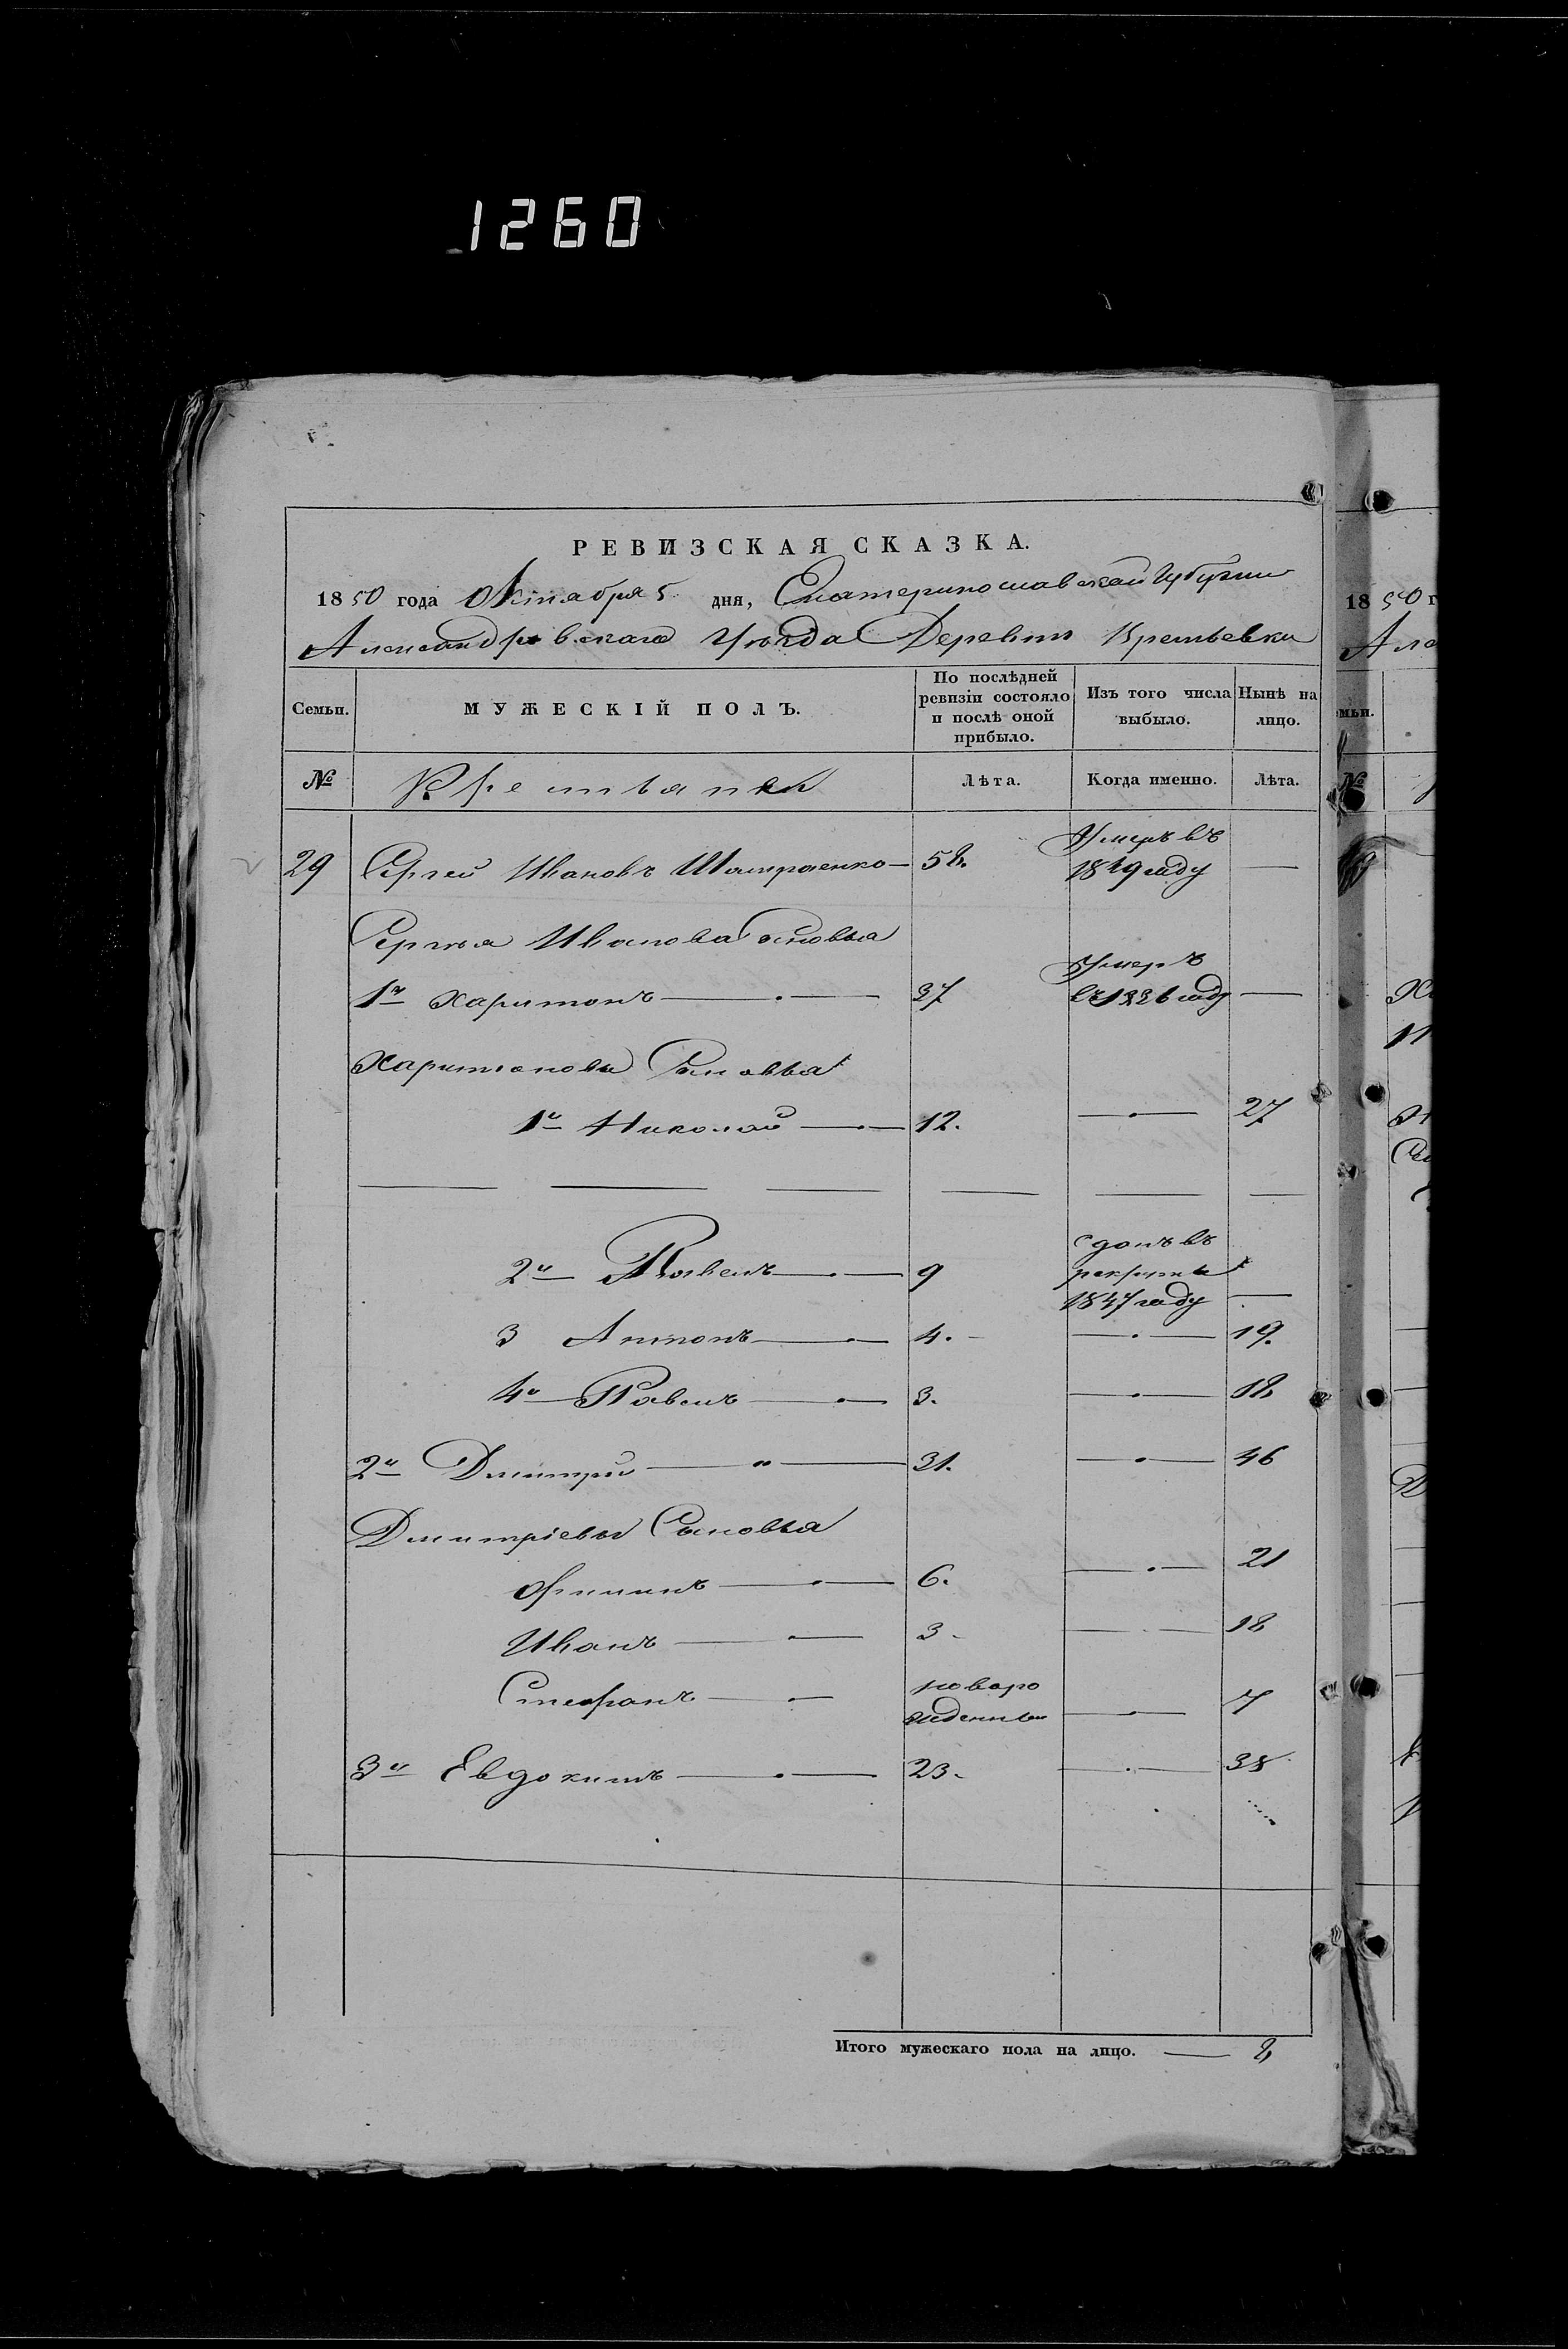 1260
РЕВИЗСКАЯ СКАЗКА.
1850 года Октября 5. дня, Екатеринославской Губернии
Александровскаго Уѣзда Деревни
Семьи. МУЖЕСКІЙ ПОЛЪ. По послѣдней ревизіи состояло и послѣ оной прибыло. Изъ того числа выбыло. Нынѣ на лицо.
№ Крестьяне Лѣта. Когда именно. Лѣта.
29 Сергей Ивановъ 58. Умеръ въ 1849 году —
Сергѣя Иванова Сыновья
1й Харитонъ — 37 Умеръ въ году —
Харитоновы Сыновья
1й Николай — 12. — 27
2й 9 сданъ въ рекруты 1847 году —
3 Антонъ — 4. — 19.
4й Павелъ — 3. — 18
2й Дмитрій — 31. — 46
Дмитріевы Сыновья
Филипъ — 6. — 21
Иванъ — 3 — 18
Стефанъ — новорожденный — 7
3й Евдокимъ — 23. — 38
Итого мужескаго пола на лицо. — 8
1850 г
Але
мьи.
№